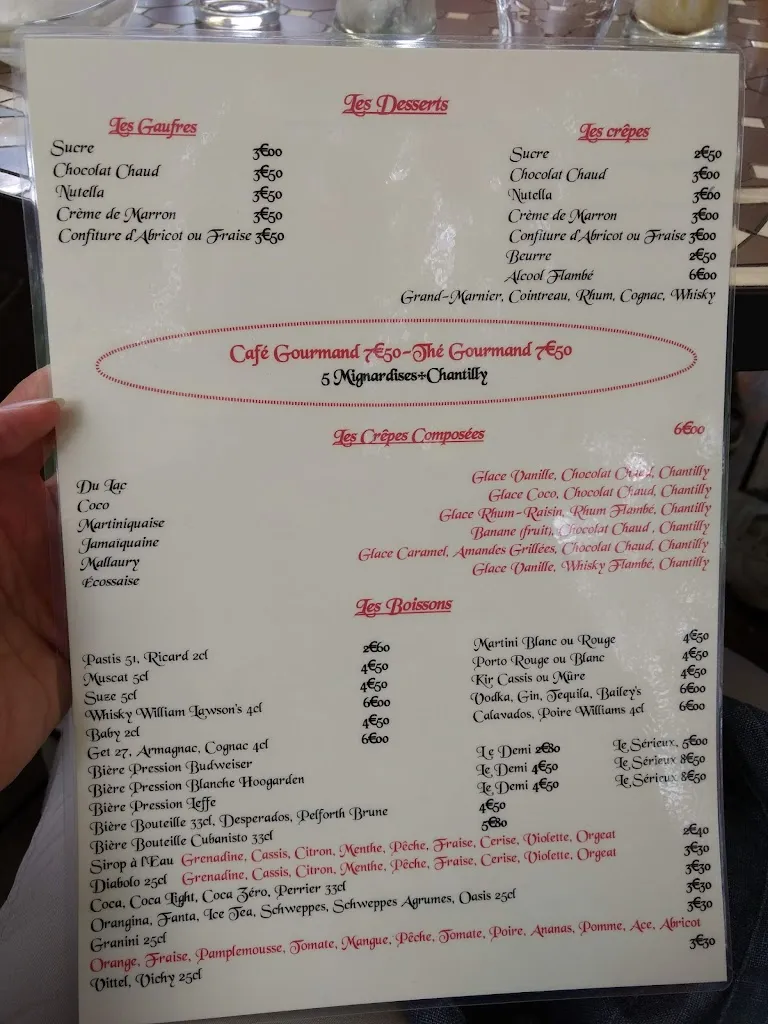 Les Desserts
Les Gaufres
Sucre 3€00
Chocolat Chaud 3€50
Nutella 3€50
Crème de Marron 3€50
Confiture d'Abricot ou Fraise 3€50
Les crêpes
Sucre 2€50
Chocolat Chaud 3€00
Nutella 3€00
Crème de Marron 3€00
Confiture d'Abricot ou Fraise 3€00
Beurre 2€50
Alcool Flambé 6€00
Grand-Marnier, Cointreau, Rhum, Cognac, Whisky
Café Gourmand 7€50-Thé Gourmand 7€50
5 Mignardises+Chantilly
Les Crêpes Composées 6€00
Du Lac Glace Vanille, Chocolat Chaud, Chantilly
Coco Glace Coco, Chocolat Chaud, Chantilly
Martiniquaise Glace Rhum-Raisin, Rhum Flambé, Chantilly
Jamaïquaine Banane (fruit), Chocolat Chaud, Chantilly
Mallaury Glace Caramel, Amandes Grillées, Chocolat Chaud, Chantilly
Écossaise Glace Vanille, Whisky Flambé, Chantilly
Les Boissons
Pastis 51, Ricard 2cl 2€60
Muscat 5cl 4€50
Suze 5cl 4€50
Whisky William Lawson's 4cl 6€00
Baby 2cl 4€50
Get 27, Armagnac, Cognac 4cl 6€00
Martini Blanc ou Rouge 4€50
Porto Rouge ou Blanc 4€50
Kir Cassis ou Mûre 4€50
Vodka, Gin, Tequila, Bailey's 6€00
Calavados, Poire Williams 4cl 6€00
Bière Pression Budweiser Le Demi 2€80 Le Sérieux, 5€00
Bière Pression Blanche Hoogarden Le Demi 4€50 Le Sérieux 8€50
Bière Pression Leffe Le Demi 4€50 Le Sérieux 8€50
Bière Bouteille 33cl, Desperados, Pelforth Brune 4€50
Bière Bouteille Cubanisto 33cl 5€80
Sirop à l'Eau Grenadine, Cassis, Citron, Menthe, Pêche, Fraise, Cerise, Violette, Orgeat 2€40
Diabolo 25cl Grenadine, Cassis, Citron, Menthe, Pêche, Fraise, Cerise, Violette, Orgeat 3€30
Coca, Coca Light, Coca Zéro, Perrier 33cl 3€30
Orangina, Fanta, Ice Tea, Schweppes, Schweppes Agrumes, Oasis 25cl 3€30
Granini 25cl 3€30
Orange, Fraise, Pamplemousse, Tomate, Mangue, Pêche, Tomate, Poire, Ananas, Pomme, Ace, Abricot
Vittel, Vichy 25cl 3€30